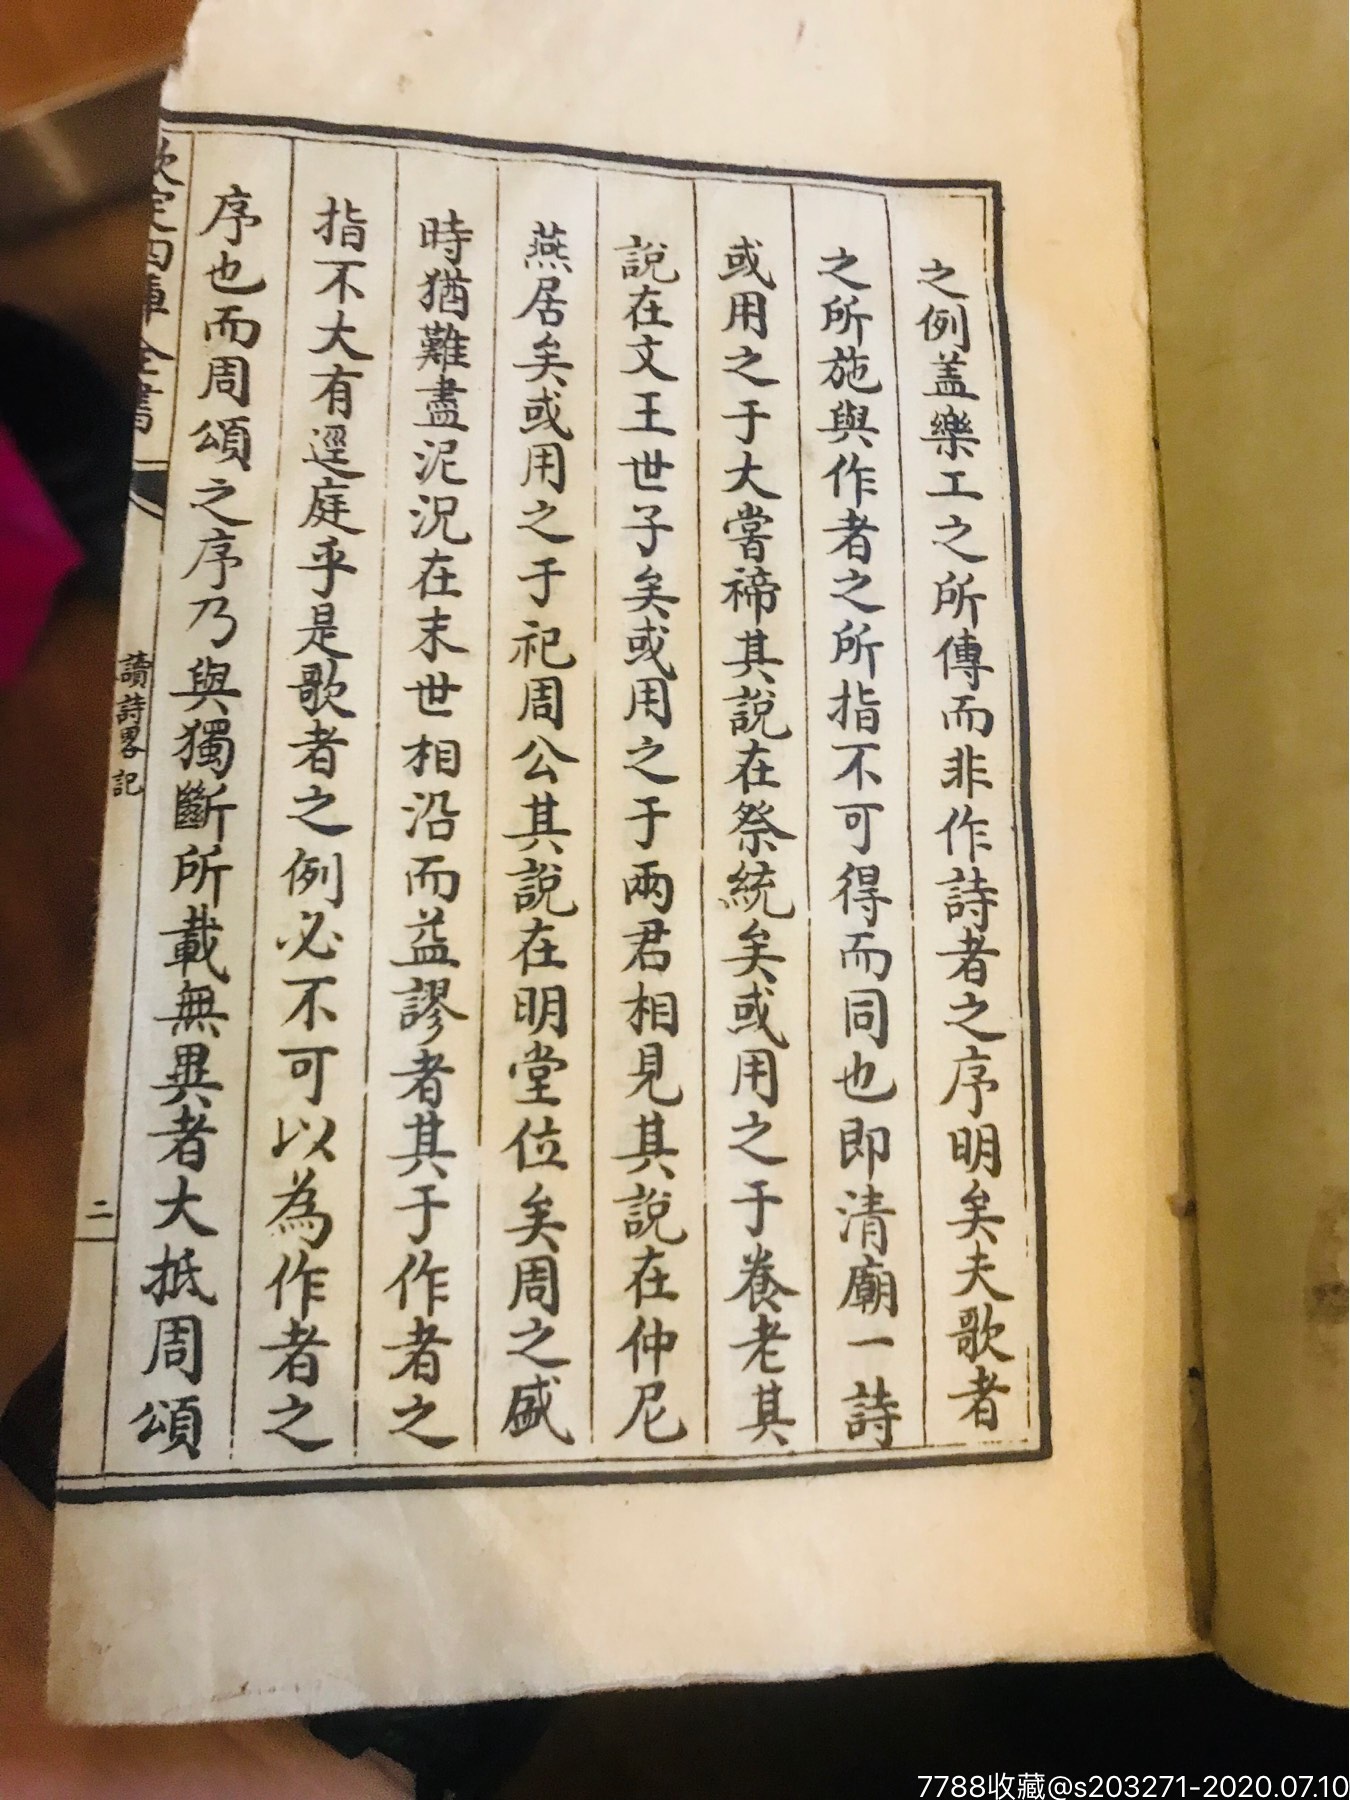 之例蓋樂工之所傳而非作詩者之序明矣夫歌者
之所施與作者之所指不可得而同也即清廟一詩
或用之于大嘗禘其說在祭統矣或用之于養老其
說在文王世子矣或用之于兩君相見其說在仲尼
燕居矣或用之于祀周公其說在明堂位矣周之盛
時猶難盡泥況在末世相沿而益謬者其于作者之
指不大有逕庭乎是歌者之例必不可以為作者之
序也而周頌之序乃與獨斷所載無異者大抵周頌
欽定四庫全書
讀詩畧記
二
7788收藏@s203271-2020.07.10